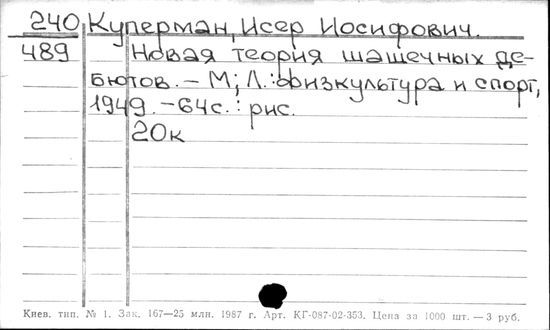 240 Куперман, Исер Иосифович.
489 Новая теория шашечных де-
бютов. – М; Л.: Физкультура и спорт,
1949. – 64с. : рис.
20к
Киев. тип. № 1. Зак. 167—25 млн. 1987 г. Арт. КГ-087-02-353. Цена за 1000 шт. — 3 руб.